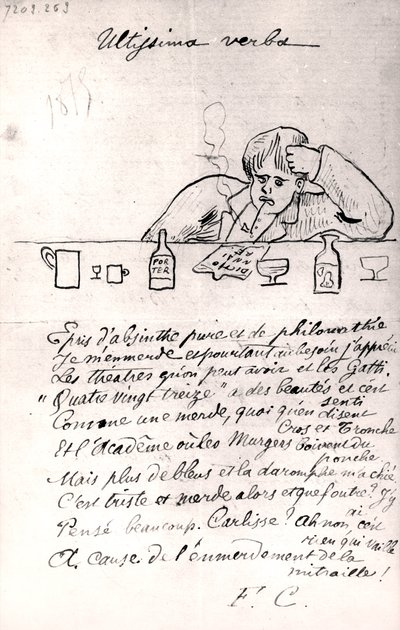 7202.253
Ultissima verba
1875
POR
TER
DICTIO
NNAI
RE
Epris d'absinthe pure et de philomathie
Je m'emmerde et pourtant au besoin j'apprécie
Les théâtres qu'on peut avoir et les Gatti.
"Quatre vingt treize" a des beautés et c'est senti
Comme une merde, quoi qu'en disent Cros et Tronche
Et l'Académie où les Murgers boivent du ponche.
Mais plus de bleus et la daromphe m'a chié.
C'est triste et merde alors et que foutre? J'y ai
Pensé beaucoup. Carlisse? Ah non, c'est rien qui vaille
A cause de l'emmerdement de la mitraille!
F. C.